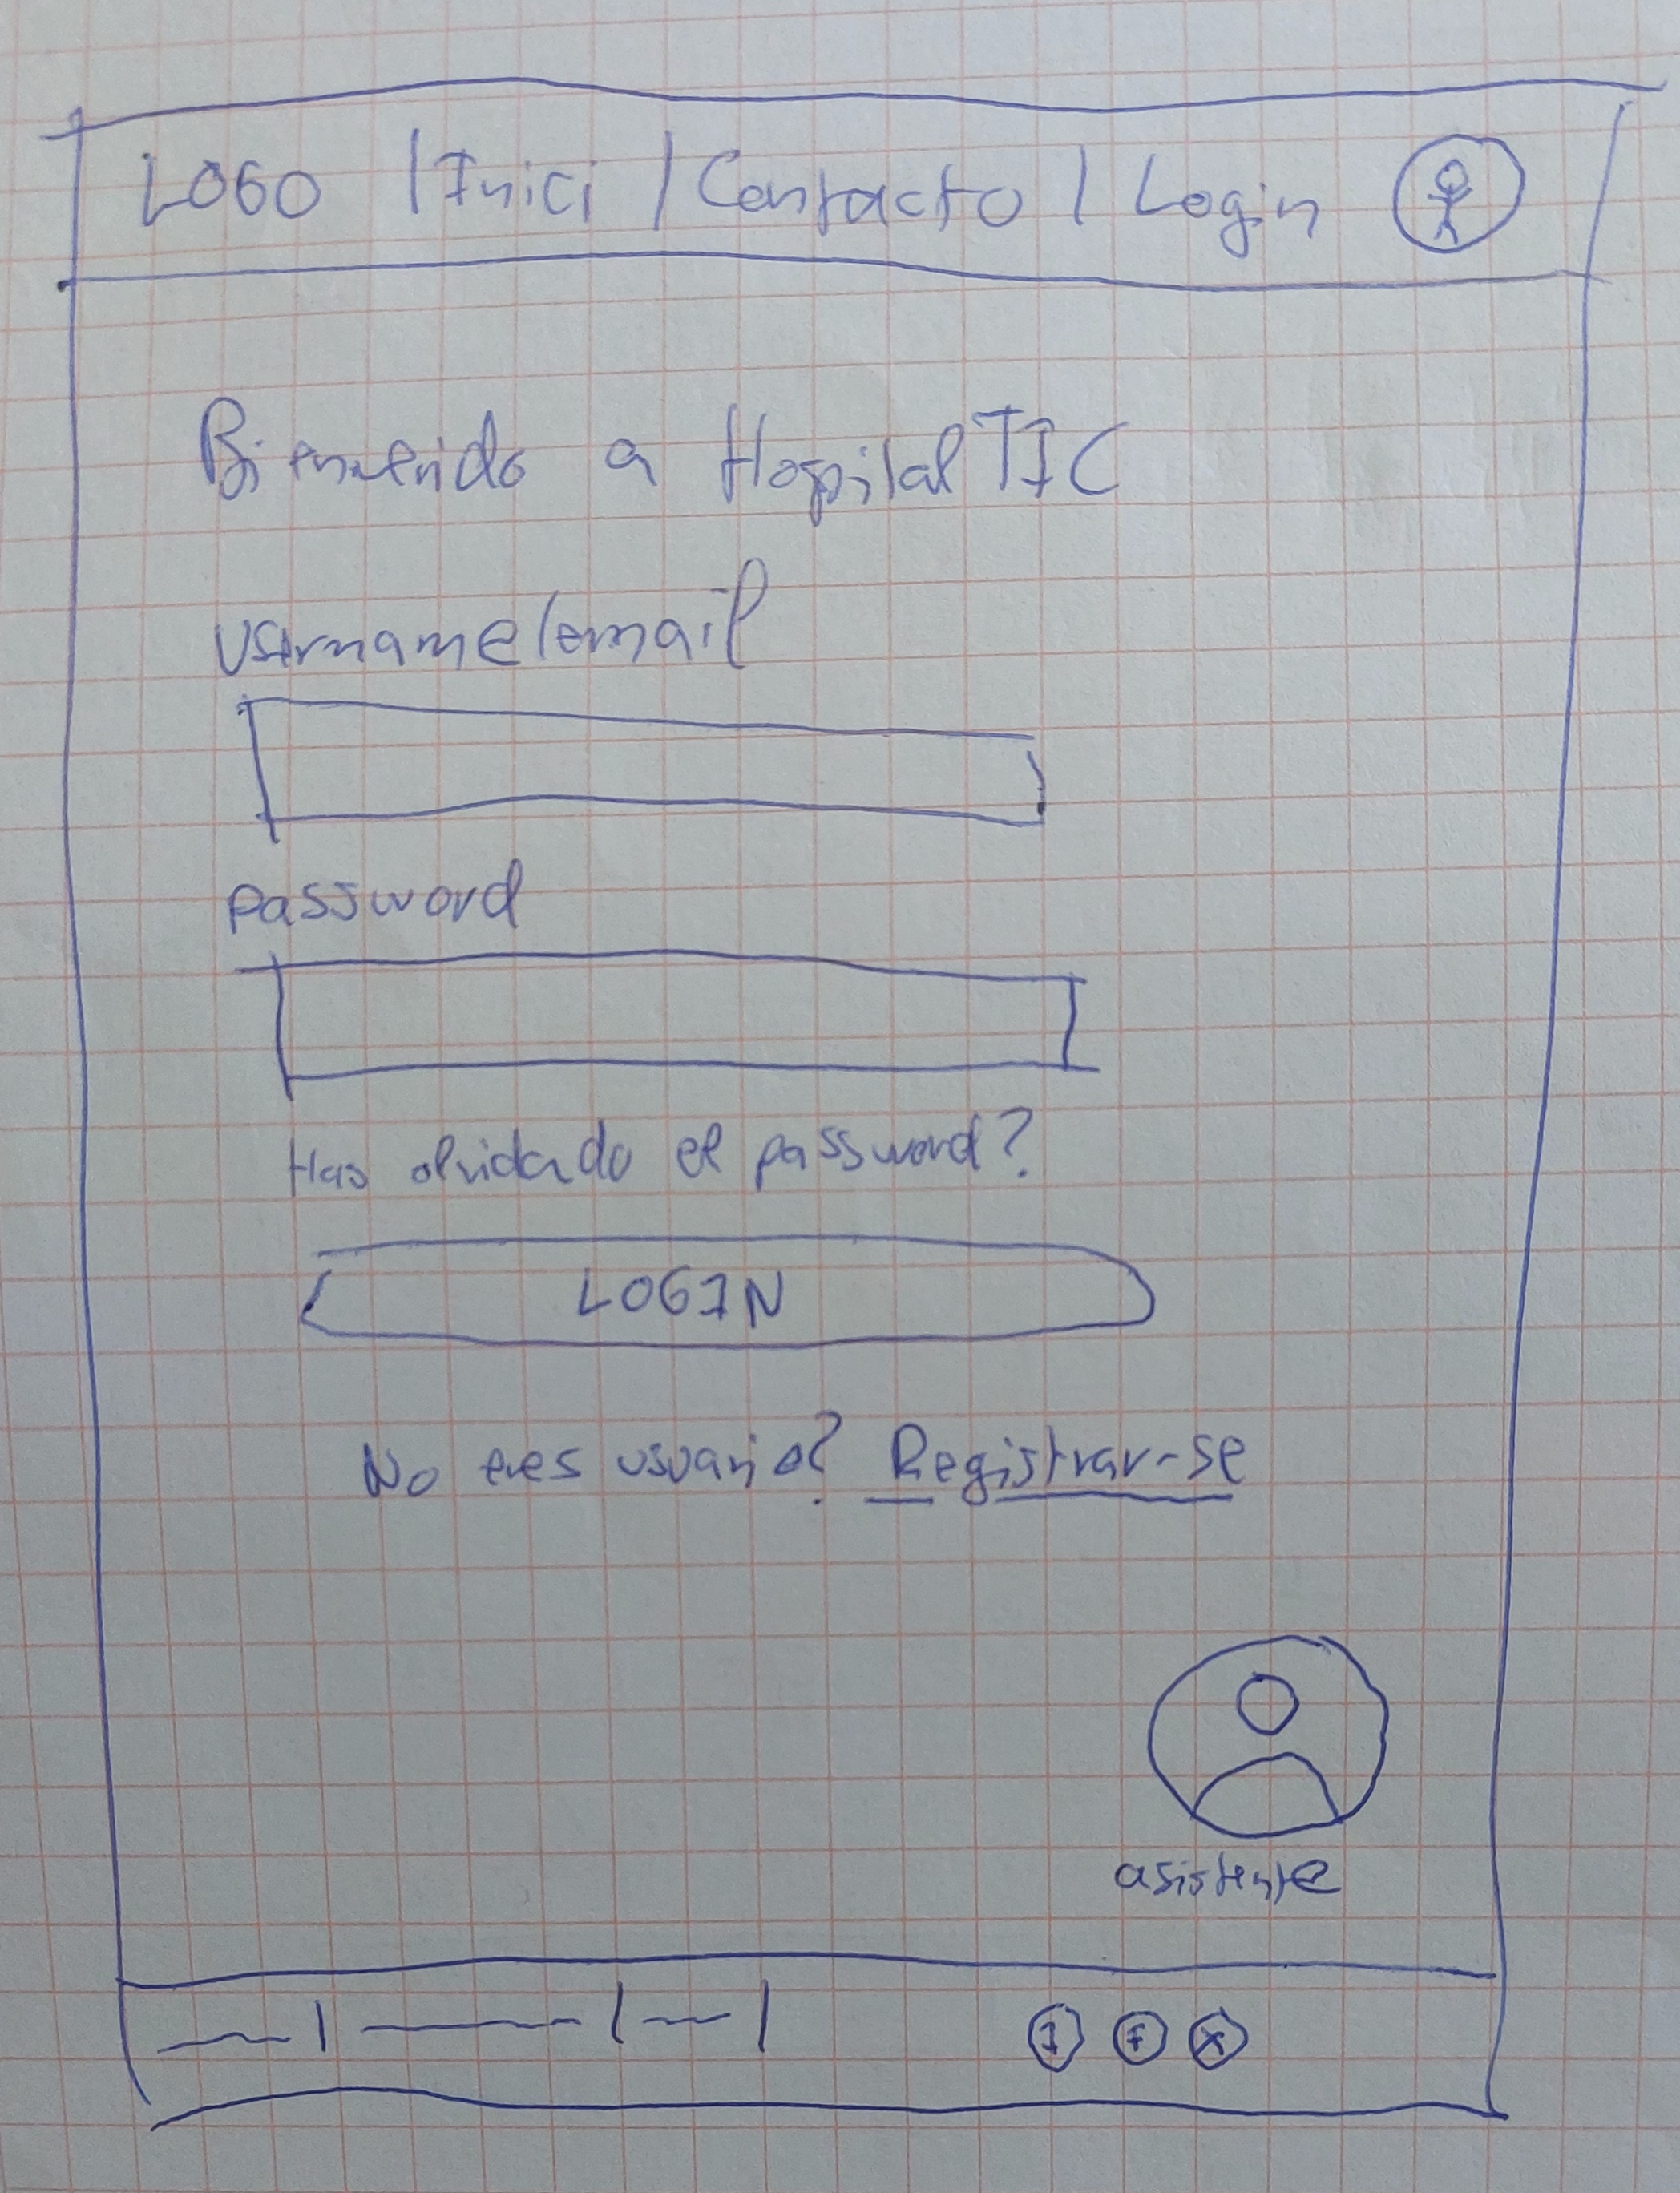 LOGO | Inici | Contacto | Login
Bienvenido a Hospital TIC
Username/email
password
Has olvidado el password?
LOGIN
No eres usuario? Registrar-se
asistente
I F X